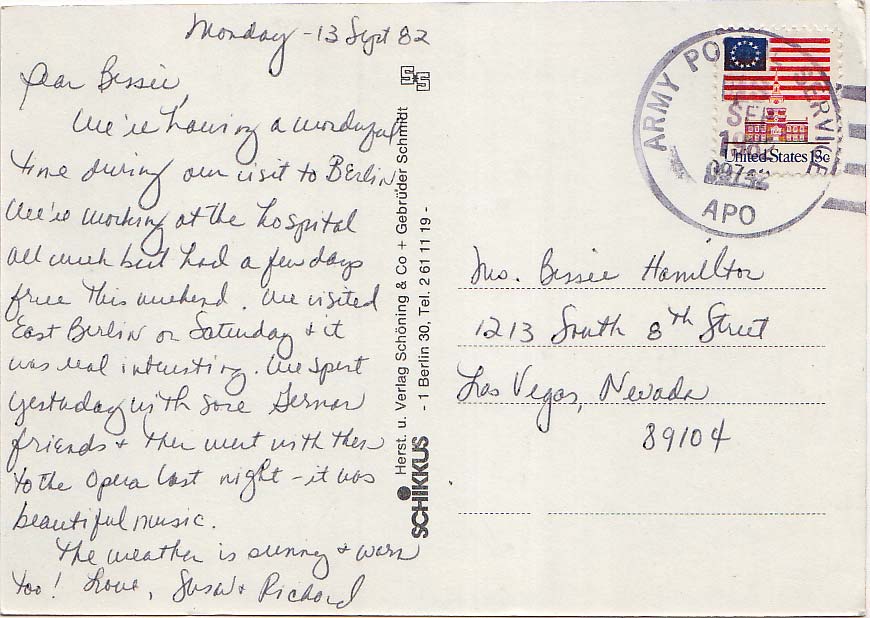 Monday - 13 Sept 82
Dear Bessie,
We're having a wonderful
time during our visit to Berlin
We're working at the hospital
all week but had a few days
free this weekend. We visited
East Berlin on Saturday + it
was real interesting. We spent
yesterday with some German
friends + then went with them
to the Opera last night - it was
beautiful music.
The weather is sunny + warm
too! Love, Susan + Richard
SCHIKKUS
Herst. u. Verlag Schöning & Co + Gebrüder Schmidt
- 1 Berlin 30, Tel. 2 61 11 19 -
S+S
ARMY POSTAL SERVICE
SEP
1982
09742
APO
United States 13c
Mrs. Bessie Hamilton
1213 South 8th Street
Las Vegas, Nevada
89104